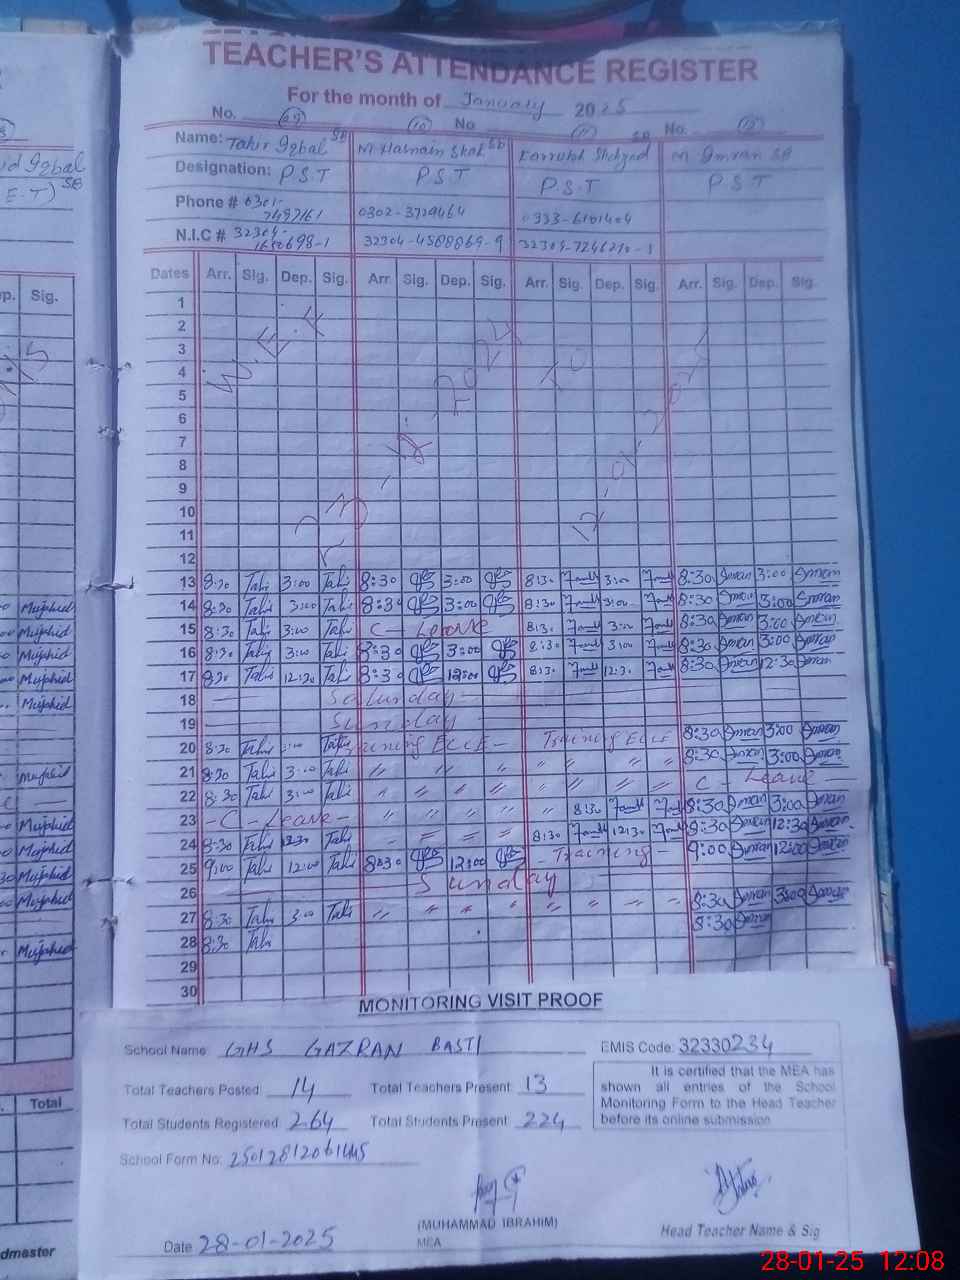 TEACHER'S ATTENDANCE REGISTER
For the month of January 2025
No. 09 10 No 11 No. 12
Name: Tahir Iqbal SB M. Hasnain Shah SB Farrukh Shehzad SB M Imran SB
Designation: P.S.T P.S.T P.S.T P S T
Phone # 0301-7497161 0302-3729464 0333-6101404
N.I.C # 32304- 32304-4588869-9
Dates Arr. Sig. Dep. Sig. Arr. Sig. Dep. Sig. Arr. Sig. Dep. Sig. Arr. Sig. Dep. Sig.
1
2
3
4
5
6
7
8
9
10
11
12
W.E.F 23-12-2024 TO 12-01-2025
13 8:30 Tahir 3:00 Tahir 8:30 3:00 8:30 3:00 8:30 Imran 3:00 Imran
14 8:30 Tahir 3:00 Tahir 8:30 3:00 8:30 3:00 8:30 Imran 3:00 Imran
15 8:30 Tahir 3:00 Tahir C - Leave 8:30 3:00 8:30 Imran 3:00 Imran
16 8:30 Tahir 3:00 Tahir 8:30 3:00 8:30 3:00 8:30 Imran 3:00 Imran
17 8:30 Tahir 12:30 Tahir 8:30 12:00 8:30 12:30 8:30 Imran 12:30 Imran
18 Saturday
19 Sunday
20 8:30 Tahir 3:00 Tahir Training ECCE - Training ECCE 8:30 Imran 3:00 Imran
21 8:30 Tahir 3:00 Tahir 〃 〃 〃 〃 〃 〃 〃 〃 8:30 Imran 3:00 Imran
22 8:30 Tahir 3:00 Tahir 〃 〃 〃 〃 〃 〃 〃 〃 C - Leave
23 - C - Leave - 〃 〃 〃 〃 〃 8:30 8:30 Imran 3:00 Imran
24 8:30 Tahir 12:30 Tahir 8:30 12:30 8:30 Imran 12:30 Imran
25 9:00 Tahir 12:00 Tahir 8:30 12:00 - Training - 9:00 Imran 12:00 Imran
26 Sunday
27 8:30 Tahir 3:00 Tahir 〃 〃 〃 〃 〃 〃 〃 〃 8:30 Imran 3:00 Imran
28 8:30 Tahir 8:30 Imran
29
30
MONITORING VISIT PROOF
School Name GHS GAZRAN BASTI
EMIS Code: 32330234
Total Teachers Posted: 14 Total Teachers Present: 13
Total Students Registered 264 Total Students Present: 224
It is certified that the MEA has
shown all entries of the School
Monitoring Form to the Head Teacher
before its online submission
School Form No:
(MUHAMMAD IBRAHIM)
MEA
Head Teacher Name & Sig
Date 28-01-2025
Iqbal
SB
E-T)
Sig.
Mujahid
Mujahid
Mujahid
Mujahid
Mujahid
Mujahid
Mujahid
Mujahid
Mujahid
Mujahid
Mujahid
Total
dmaster
28-01-25 12:08